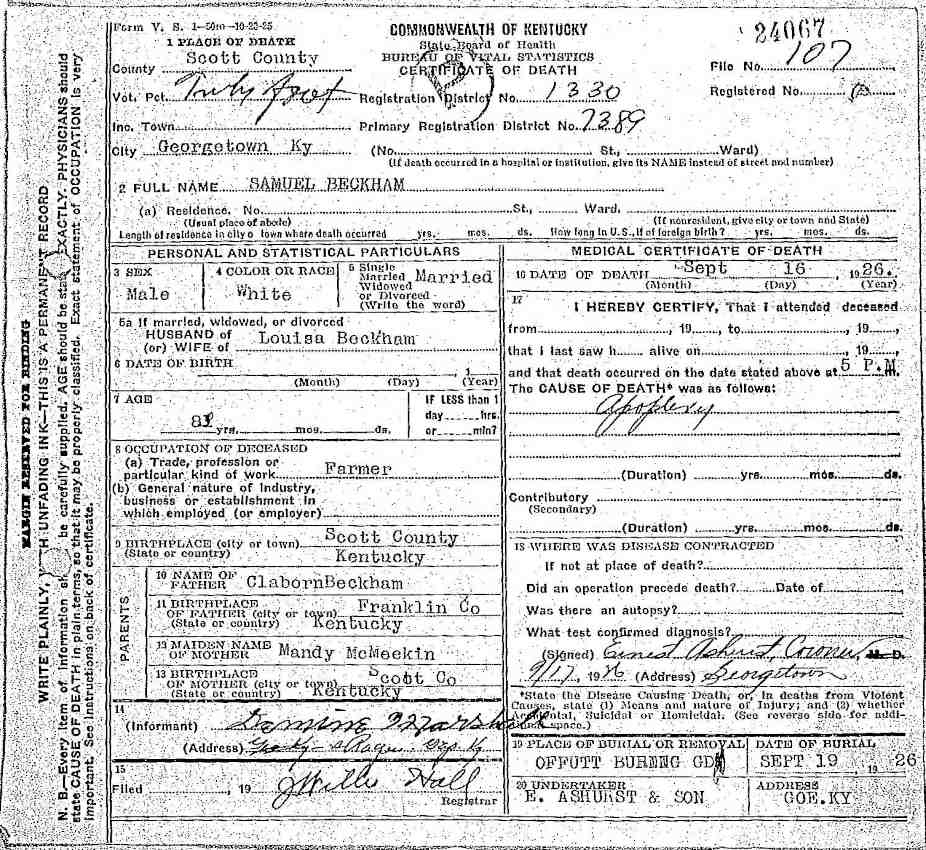 Form V. S. 1-50m-10-23-25
COMMONWEALTH OF KENTUCKY
State Board of Health
BUREAU OF VITAL STATISTICS
CERTIFICATE OF DEATH
24067
File No. 107
Registered No.
1 PLACE OF DEATH
County Scott County
Vot. Pct.
Registration District No. 1330
Inc. Town
Primary Registration District No. 7389
City Georgetown Ky (No. St., Ward)
(If death occurred in a hospital or institution, give its NAME instead of street and number)
2 FULL NAME SAMUEL BECKHAM
(a) Residence. No. St., Ward.
(Usual place of abode) (If nonresident, give city or town and State)
Length of residence in city or town where death occurred yrs. mos. ds. How long in U.S., if of foreign birth? yrs. mos. ds.
PERSONAL AND STATISTICAL PARTICULARS
3 SEX
Male
4 COLOR OR RACE
White
5 Single
Married
Widowed
or Divorced
(Write the word)
Married
5a If married, widowed, or divorced
HUSBAND of
(or) WIFE of Louisa Beckham
6 DATE OF BIRTH
1
(Month) (Day) (Year)
7 AGE
yrs. mos. ds.
IF LESS than 1
day hrs.
or min?
8 OCCUPATION OF DECEASED
(a) Trade, profession or
particular kind of work Farmer
(b) General nature of Industry,
business or establishment in
which employed (or employer)
9 BIRTHPLACE (city or town) Scott County
(State or country) Kentucky
PARENTS
10 NAME OF
FATHER ClabornBeckham
11 BIRTHPLACE
OF FATHER (city or town) Franklin Co
(State or country) Kentucky
12 MAIDEN NAME
OF MOTHER Mandy McMeekin
13 BIRTHPLACE
OF MOTHER (city or town) Scott Co
(State or country) Kentucky
14
(Informant)
(Address)
15
Filed , 19 J Willie Hall
Registrar
MEDICAL CERTIFICATE OF DEATH
16 DATE OF DEATH Sept 16 , 1926.
(Month) (Day) (Year)
17
I HEREBY CERTIFY, That I attended deceased
from , 19 , to , 19 ,
that I last saw h alive on , 19 ,
and that death occurred on the date stated above at 5 P.M m.
The CAUSE OF DEATH* was as follows:
Apoplexy
(Duration) yrs. mos. ds.
Contributory
(Secondary)
(Duration) yrs. mos. ds.
18 WHERE WAS DISEASE CONTRACTED
If not at place of death?
Did an operation precede death? Date of
Was there an autopsy?
What test confirmed diagnosis?
(Signed) Ernest Ashurst, Coroner, M. D.
9/17, 1926 (Address) Georgetown
*State the Disease Causing Death, or, in deaths from Violent
Causes, state (1) Means and nature of Injury; and (2) whether
Accidental, Suicidal or Homicidal. (See reverse side for addi-
tional space.)
19 PLACE OF BURIAL OR REMOVAL
OFFUTT BURENG GD
DATE OF BURIAL
SEPT 19 , 19 26
20 UNDERTAKER
E. ASHURST & SON
ADDRESS
GOE.KY
MARGIN RESERVED FOR BINDING
WRITE PLAINLY, WITH UNFADING INK—THIS IS A PERMANENT RECORD
N. B.—Every item of information should be carefully supplied. AGE should be stated EXACTLY. PHYSICIANS should
state CAUSE OF DEATH in plain terms, so that it may be properly classified. Exact statement of OCCUPATION is very
important. See Instructions on back of certificate.